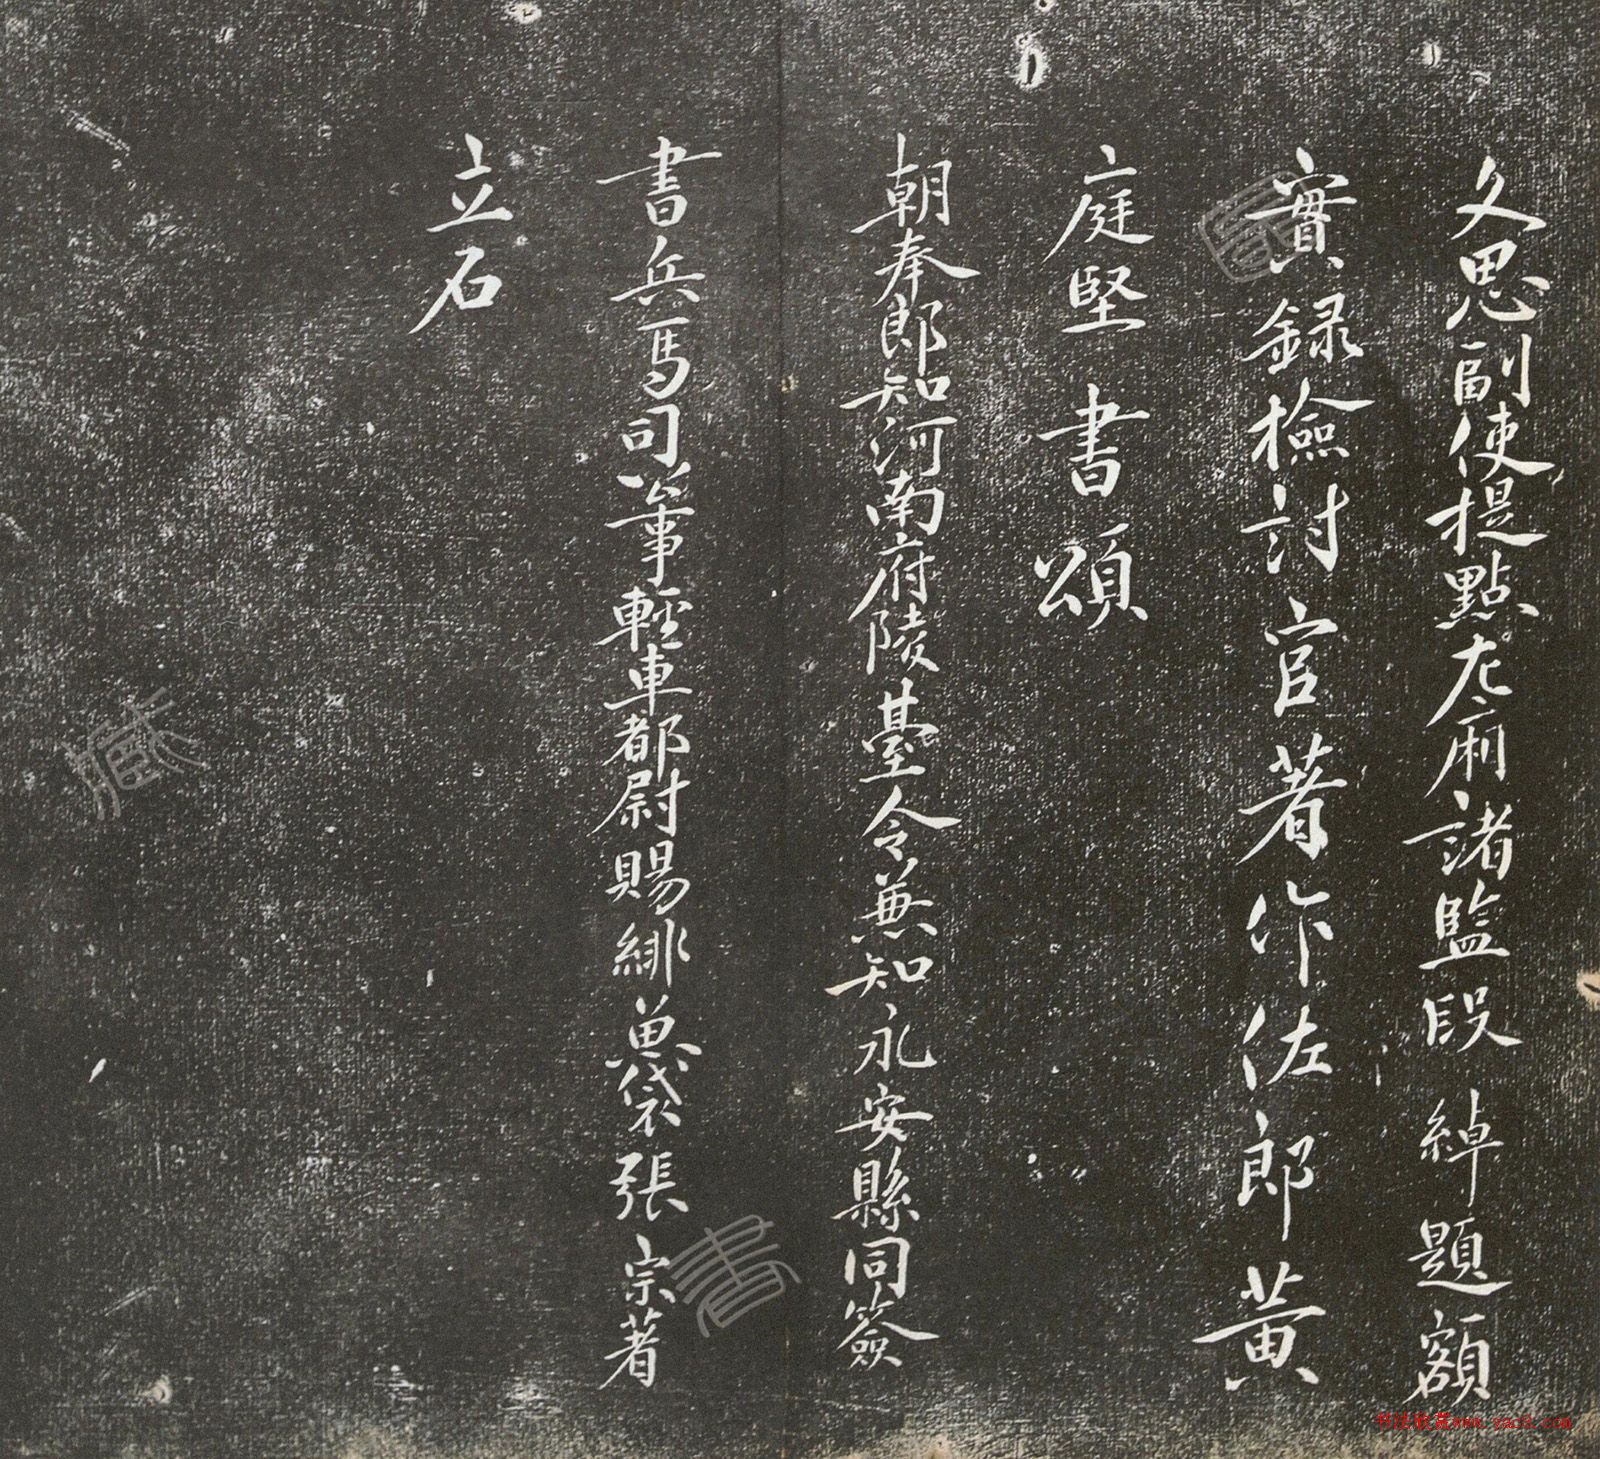 文思副使提點左廂諸監段綽題額
實錄檢討官著作佐郎黃
庭堅書頌
朝奉郎知河南府陵臺令兼知永安縣同簽
書兵馬司公事輕車都尉賜緋魚袋張宗著
立石
藏
書
书法欣赏www.yac8.com